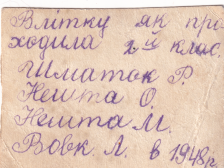 Влітку як при-
ходила 2ий клас.
Шматок Р.
Кешта О.
Кешта М.
Вовк Л. в 1948 р